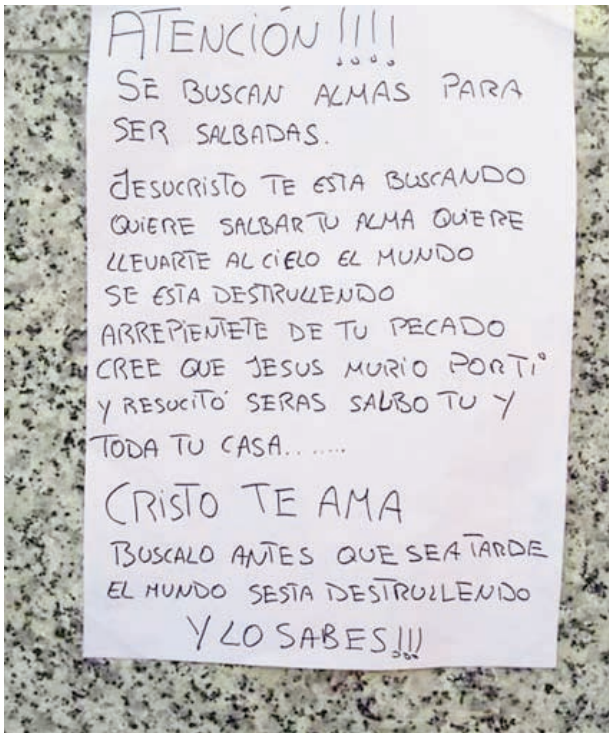 ATENCIÓN !!!!
SE BUSCAN ALMAS PARA
SER SALBADAS.
JESUCRISTO TE ESTA BUSCANDO
QUIERE SALBAR TU ALMA QUIERE
LLEVARTE AL CIELO EL MUNDO
SE ESTA DESTRULLENDO
ARREPIENTETE DE TU PECADO
CREE QUE JESUS MURIO POR TÍ
Y RESUCITÓ SERAS SALBO TU Y
TODA TU CASA.......
CRISTO TE AMA
BUSCALO ANTES QUE SEA TARDE
EL MUNDO SESTA DESTRULLENDO
Y LO SABES!!!